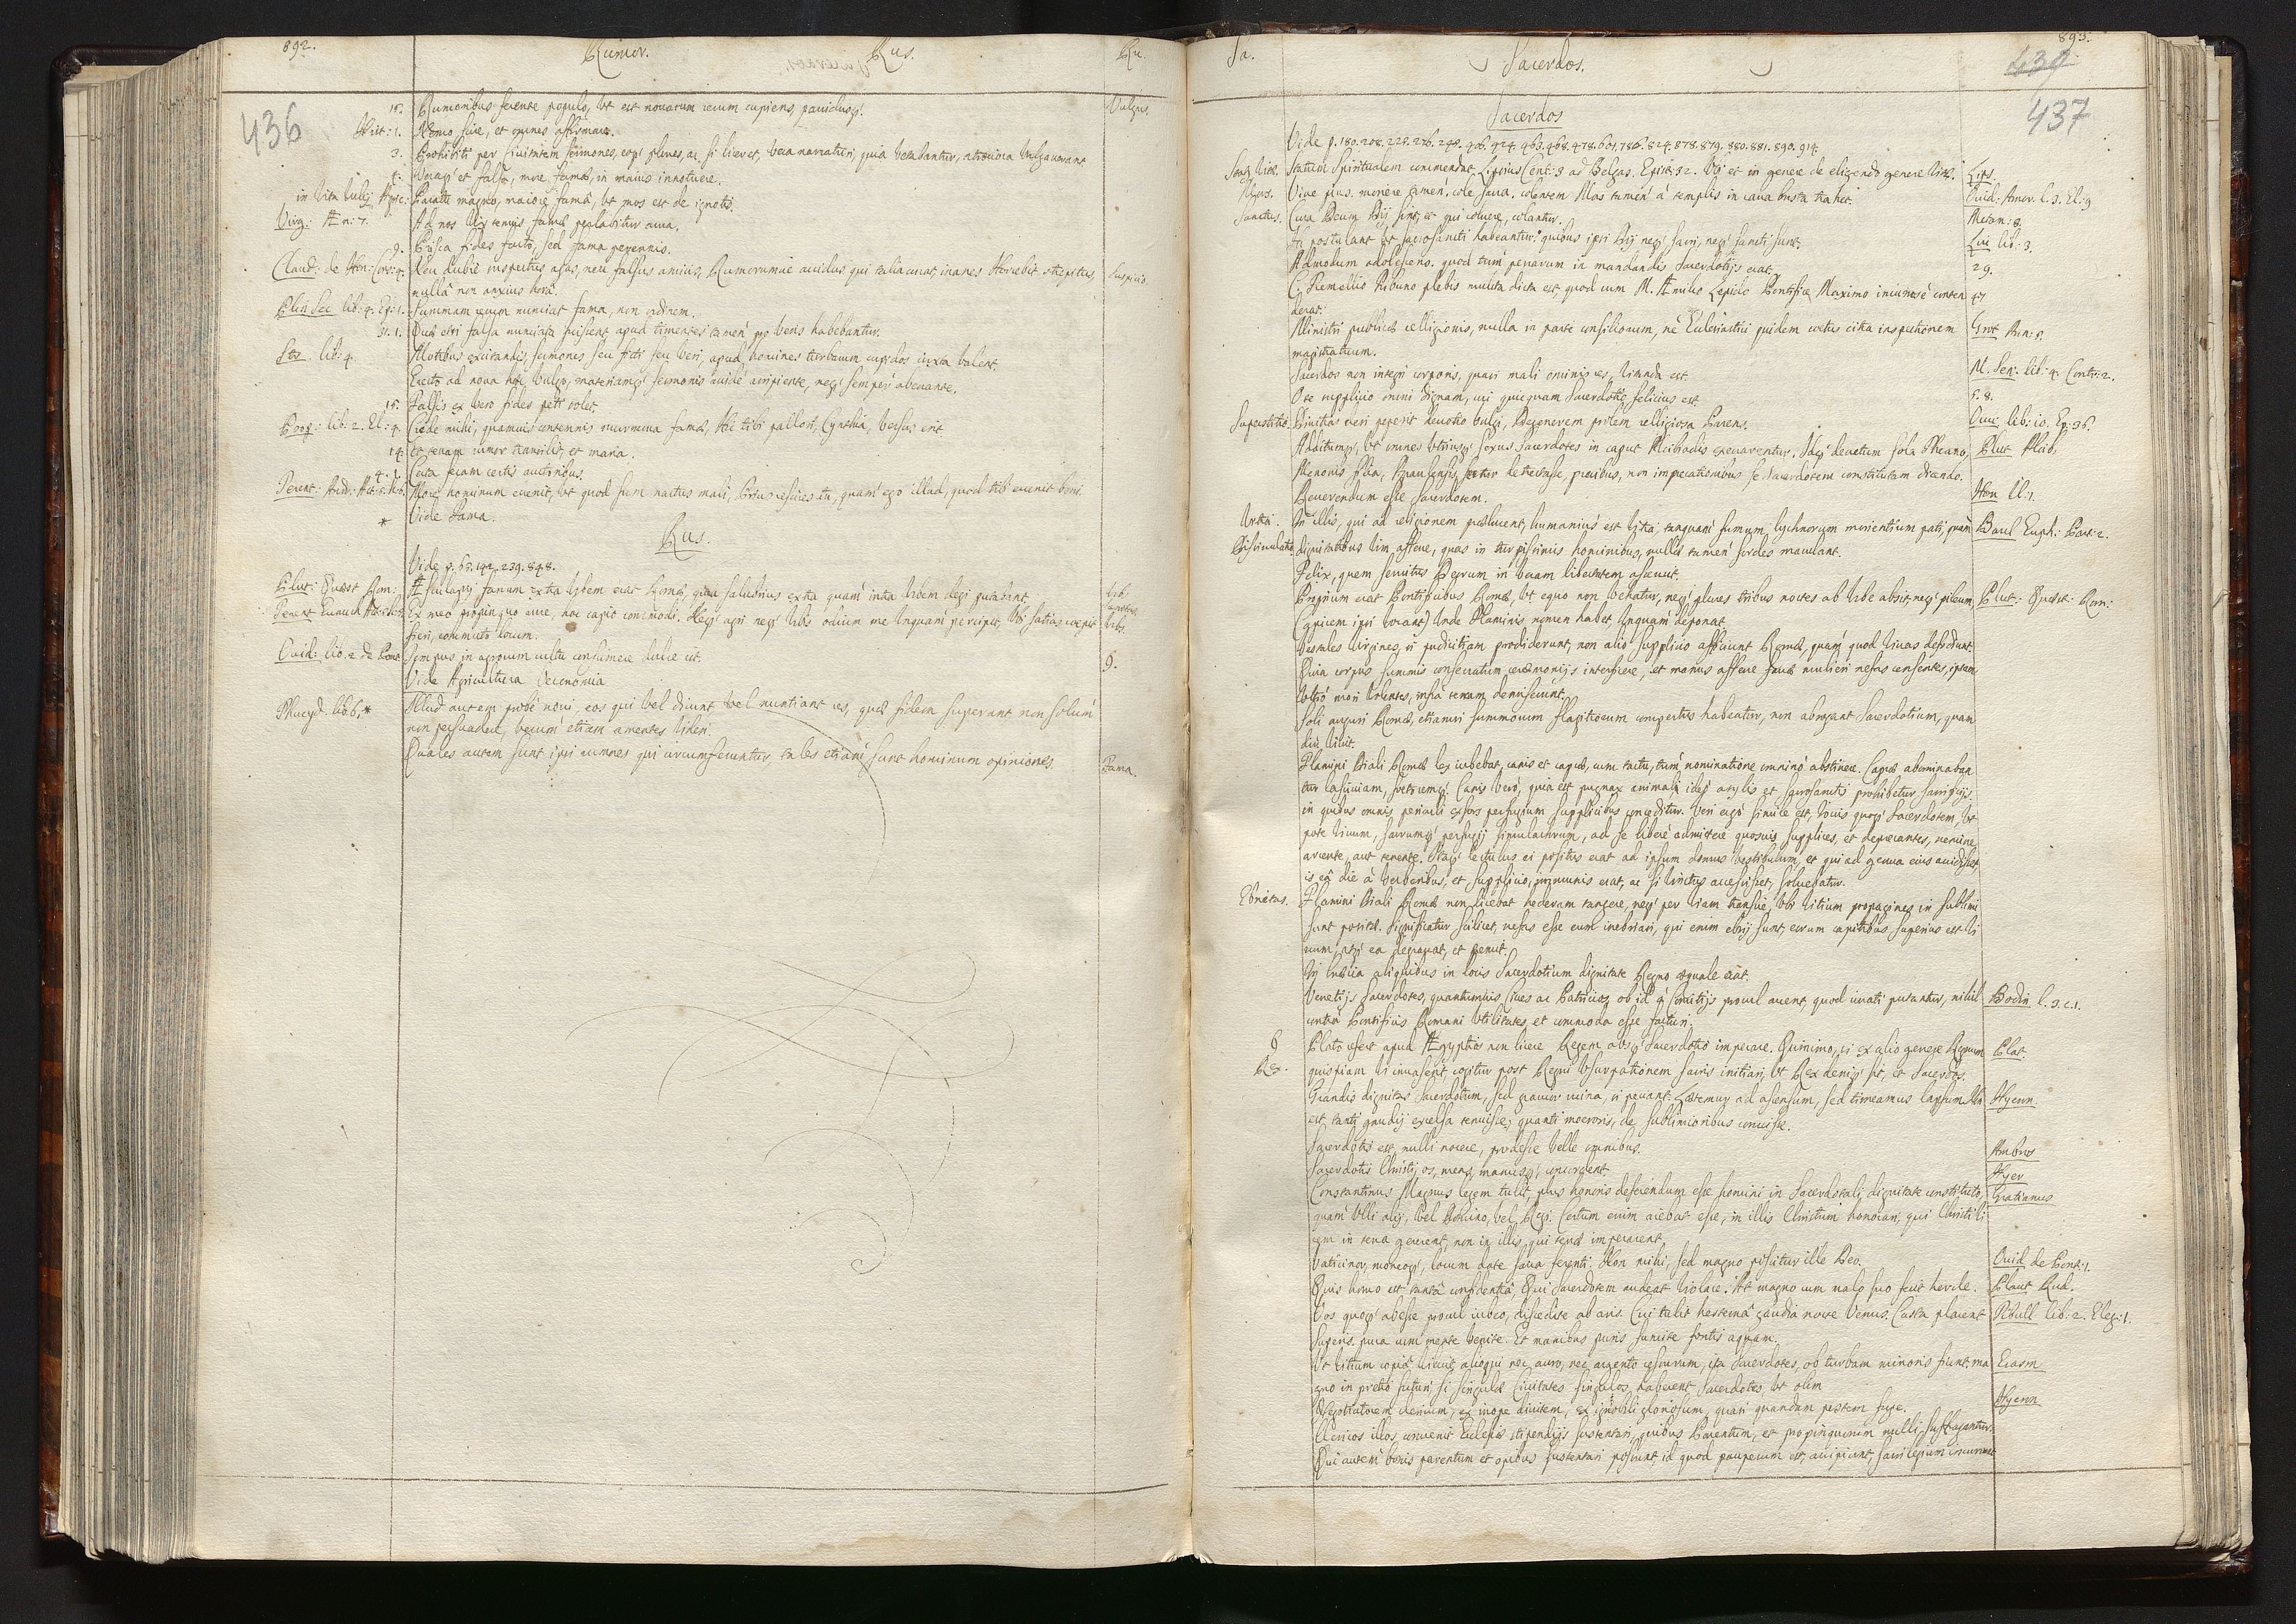 892.
Rumor.
Rus.
Ru.
436
15. Rumoribus ferente populo, ut est novarum rerum cupiens, pavidusq́.
Vulgus.
Hist: 1. Nemo scire, et omnes affirmare.
3. Prohibiti per Civitatem sermones, eoq́ plures, ac si liceret, vera narraturi, quia vetabantur, atrociora vulgaverant
4. Veraq́ et falsa, more famæ, in maius innotuere.
in Vita Iulij Agric: Paratu magno, maiore famâ, ut mos est de ignotis.
Virg: Æn: 7. Ad nos vix tenuis famæ perlabitur aura.
9. Prisca fides facto, sed fama perennis.
Claud: de Hon: Cons: 4. Neu dubie suspectus agas, neu falsus amicis, Rumorumve avidus, qui talia curat, inanes Horrebit strepitus,
nullâ non anxius horâ.
Suspicio.
Plin Sec lib: 4. Ep: 1. Summam rerum nunciat fama, non ordinem.
31. 1. Quæ etsi falsa nunciata fuissent, apud timentes tamen pro veris habebantur.
lib: 4. Motibus excitandis, sermones seu ficti seu veri, apud homines turbarum cupidos iuxta valent.
Erecto ad nova hoc vulgo, materiamq́ sermonis avidè arripiente, neq́ semper aberrante.
15. Falsis ex vero fides peti solet.
Prop: lib: 2. El: 4. Crede mihi, quamvis contemnis murmura famæ, Hic tibi pallori, Cynthia, versus erit.
14. Et terram rumor transilit, et maria.
4. 1. Certa feram certis auctoribus.
Terent: And: More hominum evenit, ut quod sum nactus mali, Prius rescisces tu, quam ego illud, quod tibi evenit boni.
* Vide Fama.
Rus.
Vide p. 63. 142. 239. 848.
Plut: Quæst Rom: Æsculapij fanum extra Urbem erat Romæ, quia salubrius extra quam intra Urbem degi putabant.
Urb:
Terent Eunuch Ex meo propinquo rure, hoc capio commodi. Neq́ agri neq́ Urbis odium me unquam percipit, Ubi satias cœpit
fieri, commuto locum.
Urbs.
Ouid: lib: 2 de Pont Tempus in agrorum cultu consumere dulce est.
9.
Vide Agricultura Oeconomia
Thucyd. lib 6. * Illud autem probè novi, eos qui vel dicunt vel nuntiant res, quæ fidem superant non solum
non persuadere, verum etiam amentes videri.
Quales autem sunt ipsi rumores qui circumferuntur, tales etiam sunt hominum opiniones.
Fama.
Sa.
Sacerdos.
893.
439
437
Sacerdos
Vide p. 180. 208. 225. 226. 295. 406. 424. 463. 468. 478. 601. 786. 824. 878. 879. 880. 881. 890. 914.
Statum Spiritualem commendat Lipsius Cent: 3 ad Belgas. Epist: 32. Ubi et in genere de eligendo genere vitæ.
Lips.
Vive pius. moriere tamen, cole sacra. colentem Mors tamen à templis in cava busta trahet.
Ouid: Amor. l. 3. El: 9
Sanctus. Cura Deum Dij sint, et qui coluere, colantur.
Metam: 8.
Hi postulant ut sacrosancti habeantur: quibus ipsi Dij neq́ sacri, neq́ sancti sunt.
Liv lib: 3.
Admodum adolescens. quod tum perrarum in mandandis Sacerdotijs erat.
29.
Cn Tremellio Tribuno plebis multa dicta est, quod cum M. Æmilio Lepido Pontifice Maximo iniuriosè conten
derat.
47
Ministri publicæ relligionis, nulla in parte consiliorum, ne Ecclesiastici quidem cœtus citra inspectionem
magistratuum.
Grot Ann: 5.
Sacerdos non integri corporis, quasi mali ominis res, vitanda est.
M. Sen: lib: 4. Contr: 2.
Ore supplicio omni dignam, nisi quicquam Sacerdotio felicius est.
5. 8.
Superstitio. Divitias veri peperit devotio vulgi, Degenerem prolem relligiosa Parens.
Ouic lib: 10. Ep: 36.
Additumq́, ut omnes utriusq́ sexus Sacerdotes in caput Alcibiades execrarentur. Idq́ decretum sola Theano,
Menonis filia, Agraulensis, fertur detrectasse, precibus, non imprecationibus se Sacerdotem constitutam dicendo.
Plut Alcib,
Reverendum esse Sacerdotem.
Hom Il: 1.
In illis, qui ad religionem prælucent, humanius est vitia tanquam fumum lychnorum morientium pati, quam
Barl Euph: Part: 2.
Dissimulatio. dignitatibus vim afferre, quas in turpissimis hominibus, nullæ tamen sordes maculant.
Felix, quem servitus Deorum in veram libertatem asseruit.
Proprium erat Pontificibus Romæ, ut equo non vehatur, neq́ plures tribus noctes ab Urbe absit, neq́ pileum,
Plut: Quæst: Rom:
(apicem ipsi vocant) unde Flaminis nomen habet, unquam deponat.
Vestales Virgines, si pudicitiam prodiderunt, non alio supplicio afficiunt Romæ, quam quod vivas defodiunt
Quia corpus summis consecratum ceremonijs interficere, et manus afferre sacræ mulieri nefas censentes, ipsam
ultro mori volentes, infra terram demiserunt.
Soli auguri Romæ, etiamsi summorum flagitiorum compertus habeatur, non abrogant Sacerdotium, quam
diu vivit.
Flamini Diali Romæ lex iubebat, canis et capræ, cum tactu, tum nominatione omnino abstinere. Capræ abominaban
tur lasciviam, fœtoremq́. Canis verò, quia est pugnax animal, ideo asylis et sacrosanctis prohibetur sacrificijs.
in quibus omnis periculi expers perfugium supplicibus conceditur. Veri ergò simile est, Iovis quoq́ Sacerdotem, ut
pote vivum, sacrumq́ perfugij simulachrum, ad se liberè admittere quosvis supplices, et deprecantes, nemine
arcente, aut terrente. Itaq́ lectulus ei positus erat ad ipsum domus vestibulum, et qui ad genua eius accidisset,
is eâ die à verberibus, et supplicio, immunis erat, ac si vinctus accessisset, solvebatur.
Ebrietas. Flamini Diali Romæ non licebat hederam tangere, neq́ per viam transire, ubi vitium propagines in sublimi
sunt positæ. Significatur scilicet, nefas esse eum inebriari, qui enim ebrij sunt, eorum capitibus superius est vi
num, atq́ ea degravat, et premit.
In Græcia aliquibus in locis Sacerdotium dignitate Regno æquale erat.
Venetijs Sacerdotes, quantumvis Cives ac Patricios ob id à Comitijs procul arcent, quod iurati putantur, nihil
contra Pontificis Romani utilitates et commoda esse facturi.
Bodin l. 3. c. 1.
Plato refert apud Ægyptios non licere Regem absq́ Sacerdotio imperare. Quinimo, si ex alio genere Regnum
Plat.
Rex. quispiam vi invaserit, cogitur post Regni usurpationem sacris initiari, ut Rex deniq́ sit, et Sacerdos.
Grandis dignitas Sacerdotum, sed gravior ruina, si peccant. Lætemur ad ascensum, sed timeamus lapsum. Non
Hyeron.
est tanti gaudij excelsa tenuisse; quanti mœroris, de sublimioribus corruisse.
Sacerdotis est, nulli nocere, prodesse velle omnibus.
Ambros
Sacerdotis Christi, os, mens, manusq́ concordent
Hyer
Constantinus Magnus legem tulit, plus honoris deferendum esse homini in Sacerdotali dignitate constituto,
Gratianus
quam ulli alij, vel Domino, vel Regi. Certum enim aiebat esse, in illis Christum honorari, qui Christi vi
cem in terra gererent, non in illis, qui terræ imperarent.
Vaticinor, moneoq́, locum date sacra ferenti. Non mihi, sed magno poscitur ille Deo.
Ouid de Pont: 1.
Quis homo est tantâ confidentiâ, Qui Sacerdotem audeat violare. At magno cum malo suo fecit hercle.
Plaut Rud.
Vos quoq́ abesse procul iubeo, discedite ab aris. Cui tulit hesternâ gaudia nocte Venus. Casta placent
Tibull lib: 2. Eleg: 1.
Superis. pura cum mente venite. Et manibus puris sumite fontis aquam.
Ut vitrum copiâ vilescit, alioqui nec auro, nec argento cessurum, ita Sacerdotes, ob turbam minoris fiunt, ma
Erasm
gno in pretio futuri, si singulæ Civitates singulos haberent Sacerdotes, ut olim
Negotiatorem clericum, ex inope divitem, ex ignobili gloriosum, quasi quandam pestem fuge.
Hyeron
Clericos illos, convenit Ecclesiæ stipendijs sustentari, quibus Parentum, et propinquorum nulli suffragantur.
Qui autem bonis parentum et opibus sustentari possunt, id quod pauperum est, accipiunt, sacrilegium incurrunt